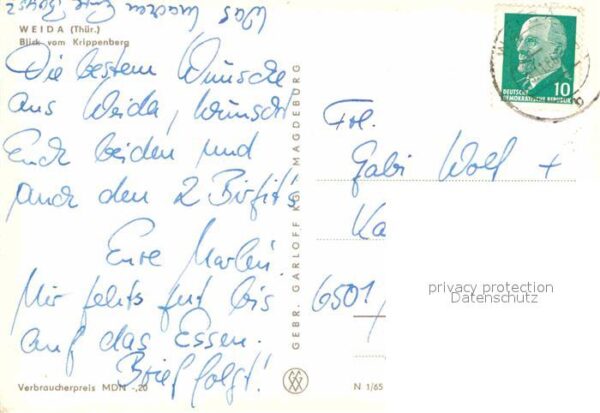 Was machen Eure Babys?
WEIDA (Thür.)
Blick vom Krippenberg
Die besten Wünsche
aus Weida, wünscht
Euch beiden und
auch den 2 Birgit's
Eure Marlis.
Mir gehts gut bis
auf das Essen.
Brief folgt!
Verbraucherpreis MDN -,20
GEBR. GARLOFF KG, MAGDEBURG
N 1/65
DEUTSCHE
DEMOKRATISCHE REPUBLIK
10
Frl.
Gabi Wolf +
Ka
6501
privacy protection
Datenschutz